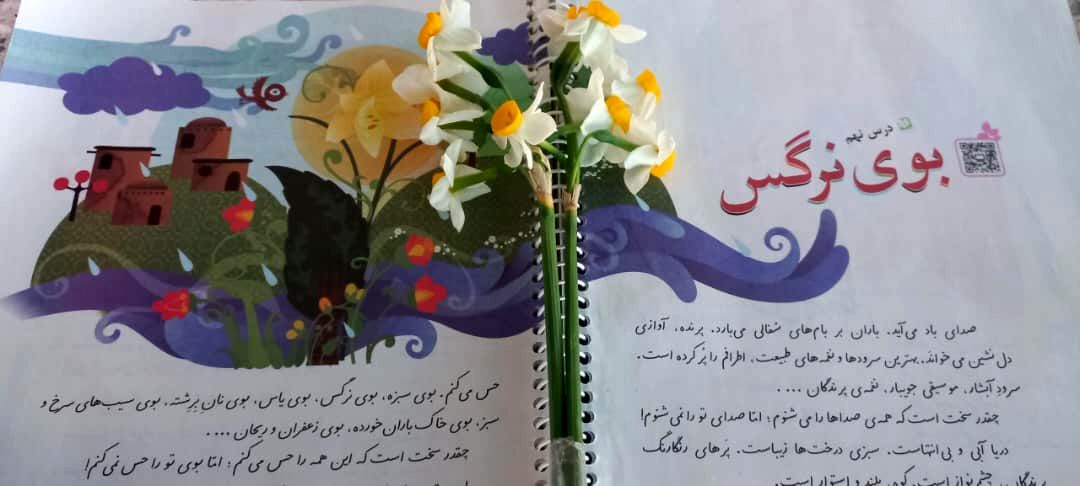 درس نهم
بوی نرگس
صدای باد می‌آید. باران بر بام‌های سفالی می‌بارد. پرنده، آوازی
دل نشین می‌خواند. بهترین سرودها و نغمه‌های طبیعت، اطرافم را پر کرده است.
سرود آبشار، موسیقی جویبار، نغمه‌ی پرندگان ....
چقدر سخت است که همه‌ی صداها را می شنوم؛ امّا صدای تو را نمی شنوم!
دریا آبی و بی‌انتهاست. سبزی درخت‌ها زیباست. پرهای رنگارنگ
پرندگان، چشم‌نواز است. کوه، بلند و استوار است.
حس می‌کنم. بوی سبزه، بوی نرگس، بوی یاس، بوی نان برشته، بوی سیب‌های سرخ و
سبز، بوی خاک باران خورده، بوی زعفران و ریحان ....
چقدر سخت است که این همه را حس می‌کنم؛ امّا بوی تو را حس نمی‌کنم!